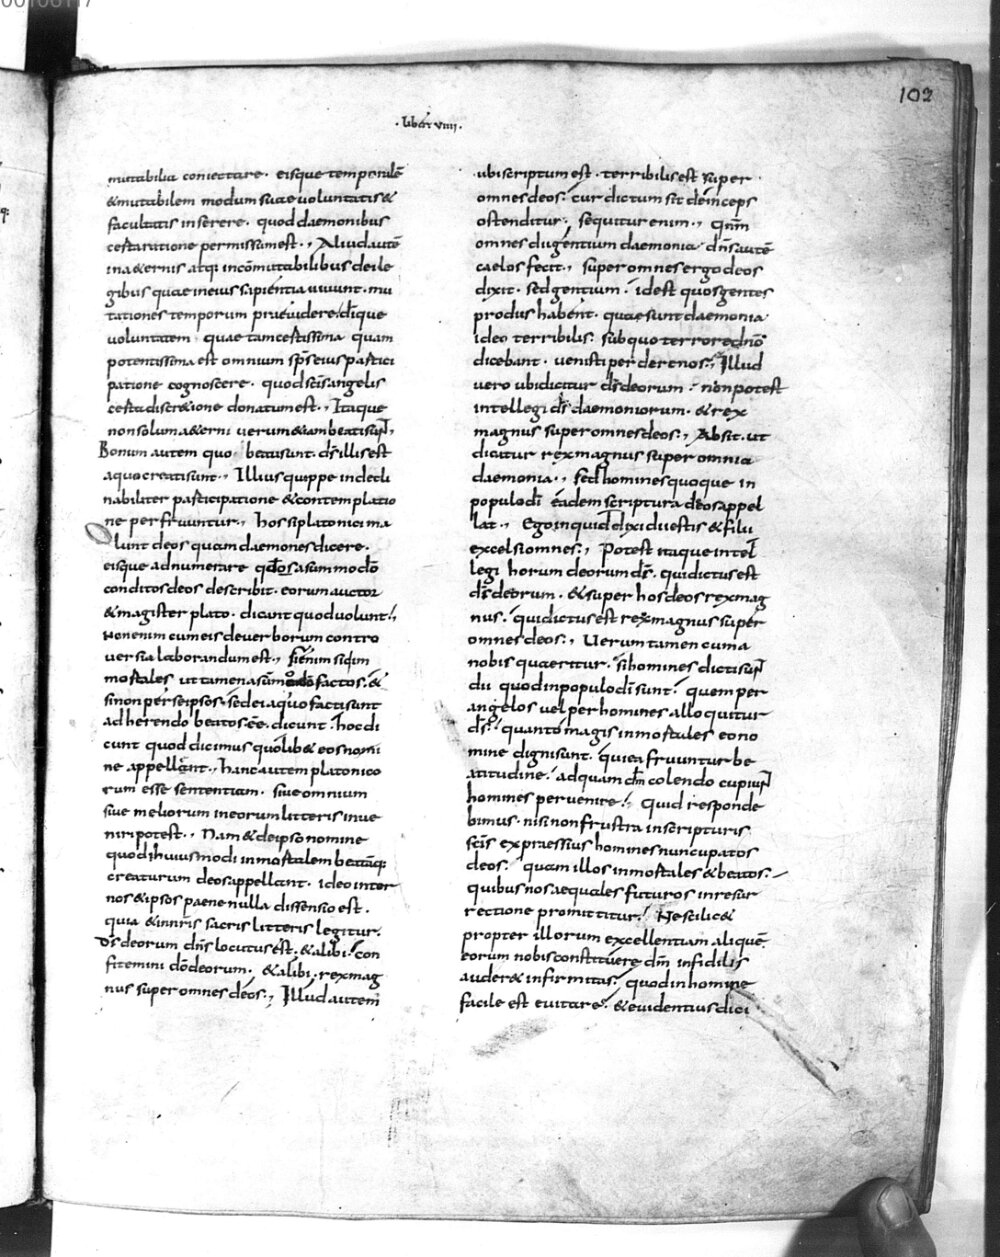 102
· liber viiii ·
mutabilia coniectare · eisque temporalē
& mutabilem modum suae voluntatis &
facultatis inserere · quod daemonibus
certa ratione permissum est ·, Aliud autē
in aeternis atq; incōmutabilibus dei le
gibus quae in eius sapientia vivunt · mu
tationes temporum praevidere · dīque
voluntatem · quae tam certissima quam
potentissima est omnium sp̄s eius partici
patione cognoscere · quod sc̄is angelis
certa discr&ione donatum est ·, Itaque
non solum aeterni verum &iam beati sun̄t ·,
Bonum autem quo beati sunt · d̄s illis est
a quo creati sunt ·, Illius quippe indecli
nabiliter participatione & contemplatio
ne perfruuntur ·, hos si platonici ma
lunt deos quam daemones dicere ·
eisque adnumerare quos a summo dō
conditos deos describit · eorum auctor
& magister plato · dicant quod volunt ·,
Non enim cum eis de verborum contro
versia laborandum est ·, Si enim sic im
mortales ut tamen a summo dō factos · &
si non per se ipsos · sed ei a quo facti sunt
adherendo beatos eē · dicunt · hoc di
cunt quod dicimus quolib& eos nomi
ne appellant ·, hanc autem platonico
rum esse sententiam · sive omnium
sive meliorum in eorum litteris inve
niri potest ·, Nam & de ipso nomine
quod huiusmodi inmortalem beatāq;
creaturam deos appellant · ideo inter
nos & ipsos paene nulla dissensio est ·
quia & in nr̄is sacris litteris legitur ·
D̄s deorum dn̄s locutus est · & alibi · con
fitemini dō deorum · & alibi · rex mag
nus super omnes deos ·, Illud autem
ubi scriptum est · terribilis est super
omnes deos · cur dictum sit deinceps
ostenditur · sequitur enim ·, Qn̄m
omnes dii gentium daemonia · dn̄s autē
caelos fecit ·, super omnes ergo deos
dixit · sed gentium · id est quos gentes
pro diis habent · quae sunt daemonia ·
ideo terribilis · sub quo terrore dn̄o
dicebant · venisti perdere nos ·, Illud
vero ubi dicitur d̄s deorum · non potest
intellegi d̄s daemoniorum · & rex
magnus super omnes deos ·, Absit · ut
dicatur rex magnus super omnia
daemonia ·, sed homines quoque in
populo dī eadem scriptura deos appel
lat ·, Ego inquid dixi dii estis & filii
excelsi omnes ·, Potest itaque intel
legi horum deorum d̄s · qui dictus est
d̄s deorum · & super hos deos rex mag
nus · qui dictus est rex magnus super
omnes deos ·, Verum tamen cum a
nobis quaeritur · si homines dicti sun̄t
dii quod in populo dī sunt · quem per
angelos vel per homines alloquitur
d̄s · quanto magis inmortales eo no
mine digni sunt · qui ea fruuntur be
atitudine · ad quam dm̄ colendo cupiun̄t
homines pervenire · Quid responde
bimus · nisi non frustra in scripturis
sc̄is expraessius homines nuncupatos
deos · quam illos inmortales & beatos ·
quibus nos aequales futuros in resur
rectione promittitur · Ne scilic&
propter illorum excellentiam aliquē
eorum nobis constituere dm̄ infidilis
auder& infirmitas · quod in homine
facile est evitare · & evidentius dici